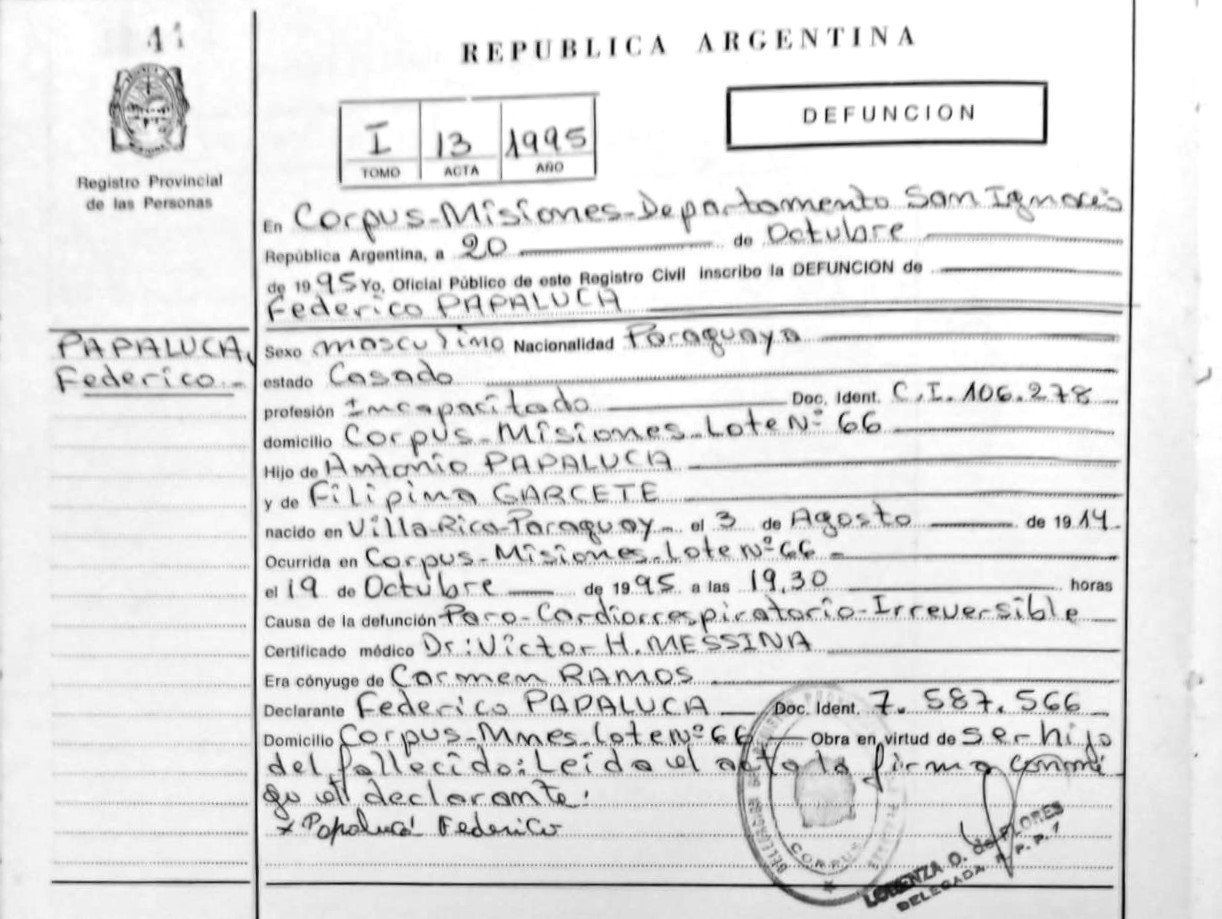 41
REPUBLICA ARGENTINA
DEFUNCION
I 13 1995
TOMO ACTA AÑO
Registro Provincial
de las Personas
En Corpus-Misiones-Departamento San Ignacio
República Argentina, a 20 de Octubre
de 1995 Yo, Oficial Público de este Registro Civil inscribo la DEFUNCION de
Federico PAPALUCA
PAPALUCA,
Federico.-
Sexo masculino Nacionalidad Paraguaya
estado Casado
profesión Incapacitado Doc. Ident. C.I. 106.278
domicilio Corpus-Misiones-Lote Nº 66
Hijo de Antonio PAPALUCA
y de Filipina GARCETE
nacido en Villa-Rica-Paraguay- el 3 de Agosto de 1914
Ocurrida en Corpus-Misiones-Lote Nº 66-
el 19 de Octubre de 1995 a las 19,30 horas
Causa de la defunción Paro-Cardiorrespiratorio-Irreversible
Certificado médico Dr: Victor H. MESSINA
Era cónyuge de Carmen RAMOS
Declarante Federico PAPALUCA Doc. Ident. 7.587.566
Domicilio Corpus-Mnes-Lote Nº 66 Obra en virtud de ser hijo
del fallecido: Leída el acta la firma conmi
go el declarante.
x Papaluca Federico
CORPUS
LORENZA O. de FLORES
DELEGADA R.P.P.